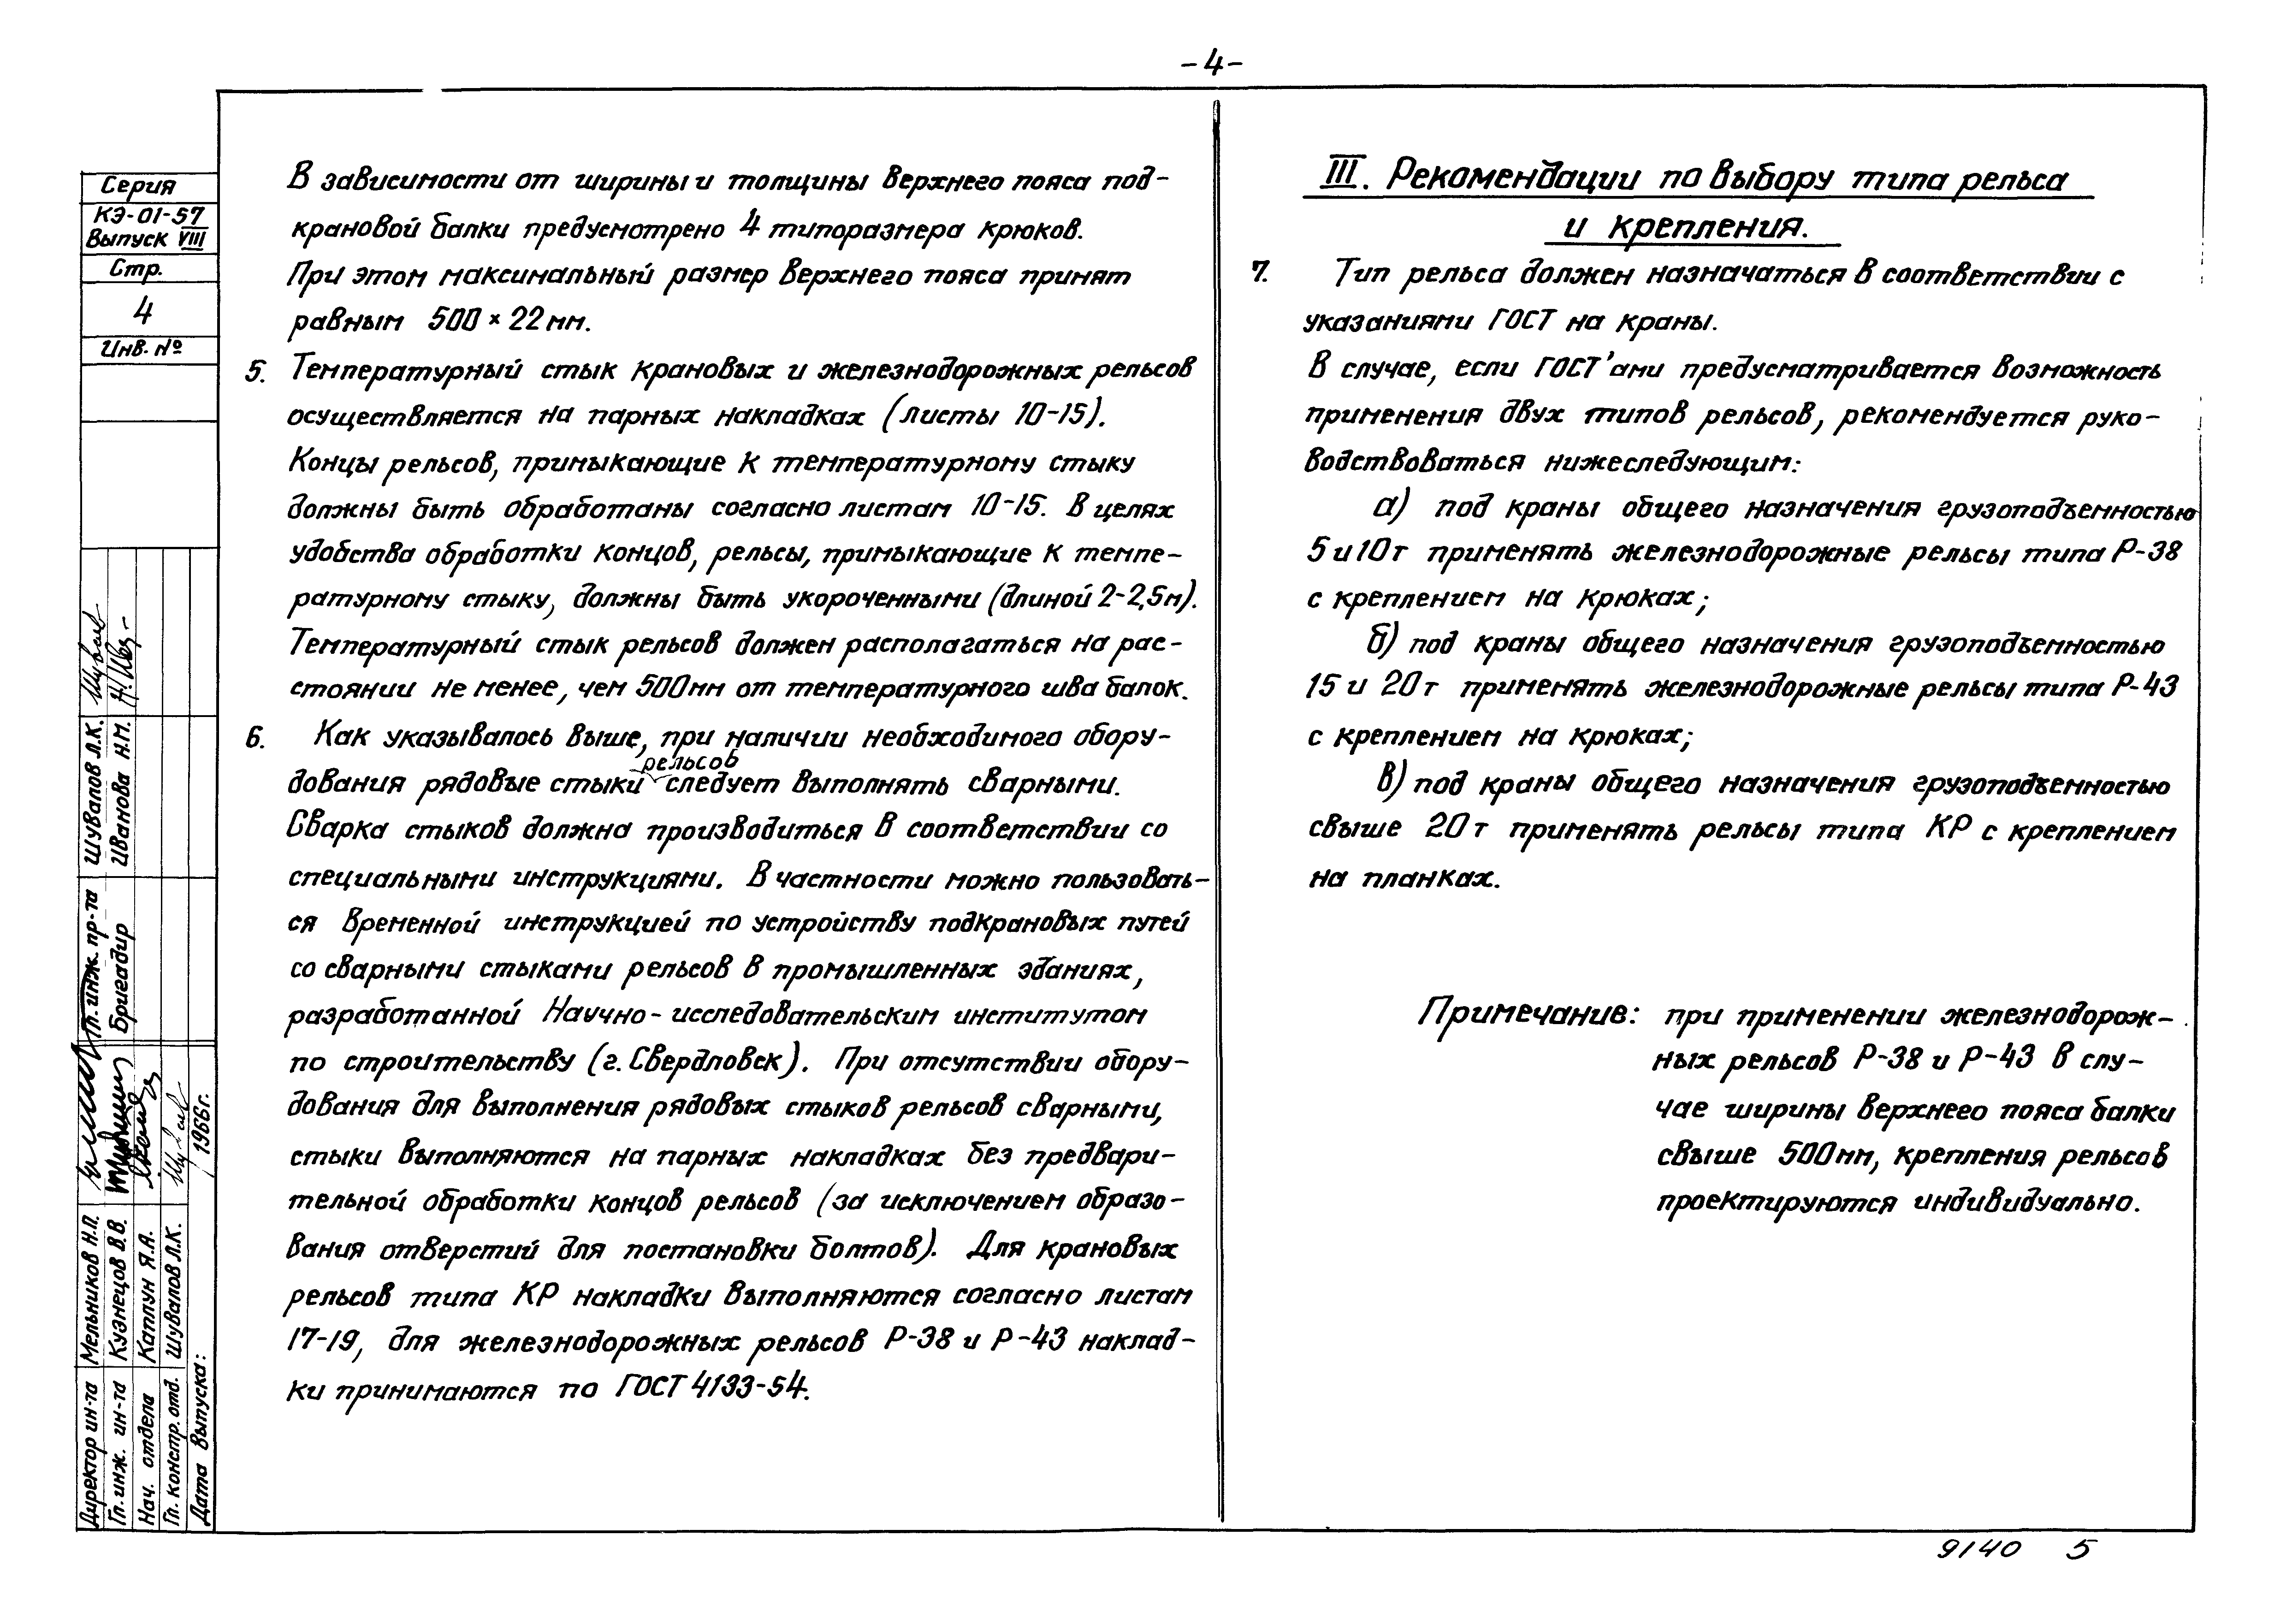 -4-
Серия
КЭ-01-57
Выпуск VIII
Стр.
4
Инв. №
В зависимости от ширины и толщины верхнего пояса под-
крановой балки предусмотрено 4 типоразмера крюков.
При этом максимальный размер верхнего пояса принят
равным 500 × 22 мм.
5. Температурный стык крановых и железнодорожных рельсов
осуществляется на парных накладках (листы 10-15).
Концы рельсов, примыкающие к температурному стыку
должны быть обработаны согласно листам 10-15. В целях
удобства обработки концов, рельсы, примыкающие к темпе-
ратурному стыку, должны быть укороченными (длиной 2-2,5м).
Температурный стык рельсов должен располагаться на рас-
стоянии не менее, чем 500мм от температурного шва балок.
6. Как указывалось выше, при наличии необходимого обору-
дования рядовые стыки рельсов следует выполнять сварными.
Сварка стыков должна производиться в соответствии со
специальными инструкциями. В частности можно пользовать-
ся Временной инструкцией по устройству подкрановых путей
со сварными стыками рельсов в промышленных зданиях,
разработанной Научно-исследовательским институтом
по строительству (г. Свердловск). При отсутствии обору-
дования для выполнения рядовых стыков рельсов сварными,
стыки выполняются на парных накладках без предвари-
тельной обработки концов рельсов (за исключением образо-
вания отверстий для постановки болтов). Для крановых
рельсов типа КР накладки выполняются согласно листам
17-19, для железнодорожных рельсов Р-38 и Р-43 наклад-
ки принимаются по ГОСТ 4133-54.
III. Рекомендации по выбору типа рельса
и крепления.
7. Тип рельса должен назначаться в соответствии с
указаниями ГОСТ на краны.
В случае, если ГОСТ'ами предусматривается возможность
применения двух типов рельсов, рекомендуется руко-
водствоваться нижеследующим:
а) под краны общего назначения грузоподъемностью
5 и 10т применять железнодорожные рельсы типа Р-38
с креплением на крюках;
б) под краны общего назначения грузоподъемностью
15 и 20т применять железнодорожные рельсы типа Р-43
с креплением на крюках;
в) под краны общего назначения грузоподъемностью
свыше 20т применять рельсы типа КР с креплением
на планках.
Примечание: при применении железнодорож-
ных рельсов Р-38 и Р-43 в слу-
чае ширины верхнего пояса балки
свыше 500мм, крепления рельсов
проектируются индивидуально.
Гл. инж. пр-та Шувалов Л.К.
Бригадир Иванова Н.М.
Директор ин-та Мельников Н.П.
Гл. инж. ин-та Кузнецов В.В.
Нач. отдела Каплун Я.А.
Гл. констр. отд. Шувалов Л.К.
Дата выпуска: 1966г.
9140 5